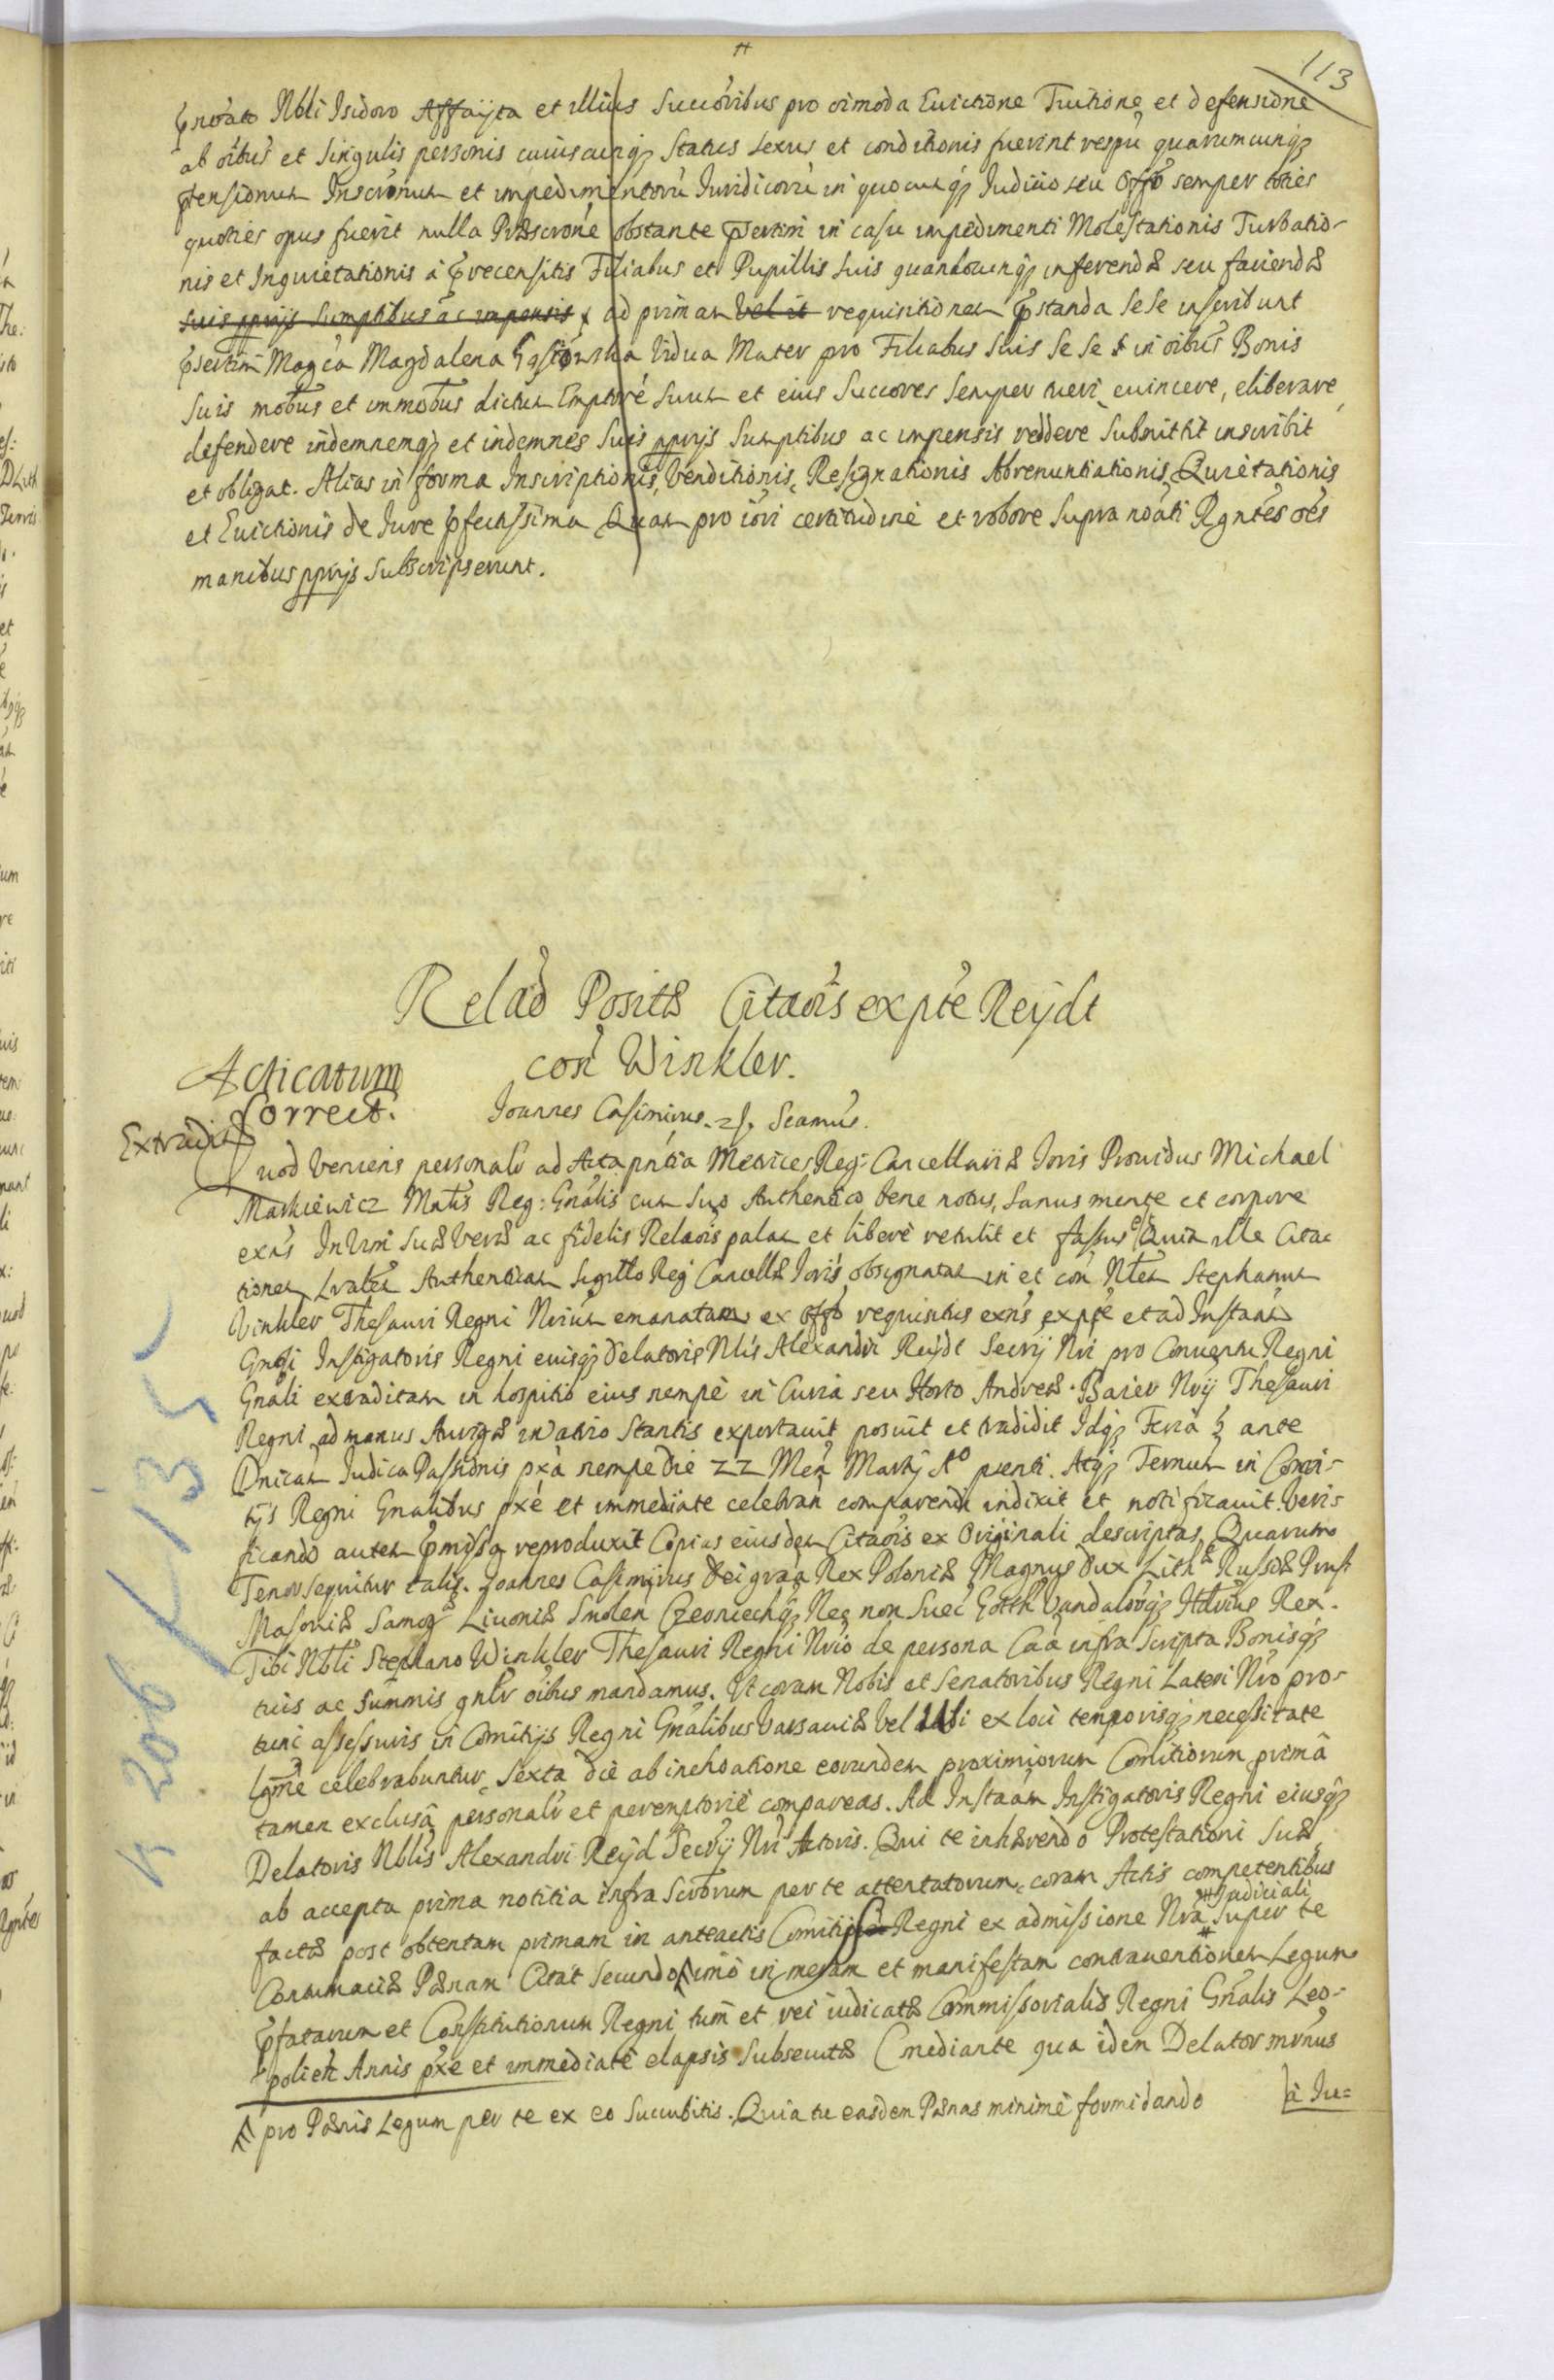 113
pnoato Nbli Isidoro Affayta et illius Succoribus pro oimoda Evictione Tuitione et defensione
ab oibus et singulis personis cuiuscunq3 Status sexus et conditionis fuerint respu quarumcunq3
ptensionum Inscronum et impedimentoru Iuridicoru in quocunq3 Iudicio seu Offo semper toties
quoties opus fuerit nulla Praescrone obstante psertim in casu impedimenti Molestationis Turbatio-
nis et Inquietationis a precensitis Filiabus et Pupillis suis quandocunq3 inferendae seu faciendae
suis pprijs Sumptibus ac impensis x ad primam vel it requisitionem pstanda sese inscribunt
psertim Magca Magdalena Vidua Mater pro Filiabus suis se se in oibus Bonis
suis mobus et immobus dictum Emptore suum et eius Succores semper tueri evincere, eliberare
defendere indemnemq3 et indemnes suis pprijs Sumptibus ac impensis reddere submittit inscribit
et obligat. Alias in forma Inscriptionis, Venditionis, Resignationis Abrenuntiationis Quietationis
et Evictionis de Iure pfectissima Quam pro iori certitudine et robore supra noati Rgntes oes
manibus pprijs subscripserunt.
Relao Positae Citaois ex pte Reydt
con Winkler.
Acticatum
Correct.
Ioannes Casimirus. Seamus.
Extradit
Quod Veniens personalr ad Acta pntia Metrices Reg: Cancellariae Ioris Providus Michael
Markiewicz Matis Reg: Gnalis cum suo Authentico bene notus, sanus mente et corpore
exns In Vim suae verae ac fidelis Relaois palam et libere retulit et fassus e Quia ille Cita-
tionem Lralem Authenticam sigillo Reg Cancellae Ioris obsignatam in et con Nlem Stephanum
Vinkler Thesauri Regni Nrium emanatam ex offo requisitus exns ex pte et ad Instam
Gnosi Instigatoris Regni eiusq3 delatoris Nlis Alexandri Reydt Secrij Nri pro Conventu Regni
Gnali extraditam in hospitio eius nempe in Curia seu Horto Andreae Baier Nrij Thesauri
Regni ad manus Aurigae in atrio stantis exportavit posuit et tradidit Idq3 Feria ante
Dnicam Iudica Passionis pxa nempe die 22 Men Martij Ao pnti. Atq3 Ternum in Comi-
tijs Regni Gnalibus pxe et immediate celebran comparendi indixit et notificavit. Veri-
ficando autem pmissa reproduxit Copias eiusdem Citaois ex Originali descriptas Quarum
Tenor sequitur talis. Ioannes Casimirus Dei graa Rex Poloniae Magnus Dux Lithae Russiae Prus
Masoviae Samog Livoniae Smolen Czerniechq3 Nec non Suec Gotth Vandaloq3 Hdrius Rex.
Tibi Nbli Stephano Winkler Thesauri Regni Nrio de persona Caa infra scripta Bonisq3
tuis ac summis gnlr oibus mandamus. Ut coram Nobis et Senatoribus Regni Lateri Nro pro
tunc assessuris in Comitijs Regni Gnalibus Varsaviae vel Ubi ex loci temporisq3 necessitate
celebrabuntur, sexta die ab inchoatione eorundem proximiorum Comitiorum prima
tamen exclusa personalr et peremptorie compareas. Ad Instaam Instigatoris Regni eiusq3
Delatoris Nblis Alexandri Reyd Secrij Nri Actoris. Qui te inhaerendo Protestationi suae
ab accepta prima notitia infra scriptorum per te attentatorum, coram Actis competentibus
factae post obtentam primam in anteactis Comitijs Regni ex admissione Nra # super te
# Judiciali
Contumaciae Paenam Citat secundo imo in meram et manifestam contraventionem Legum
pfatarum et Constitutionum Regni tum et rei iudicatae Commissorialis Regni Gnalis Leo-
polien Annis pxe et immediate elapsis subsecutae (mediante qua idem Delator munus
pro Paenis Legum per te ex eo succubitis. Quia tu easdem Paenas minime formidando
a Iu=
k 206 / 135